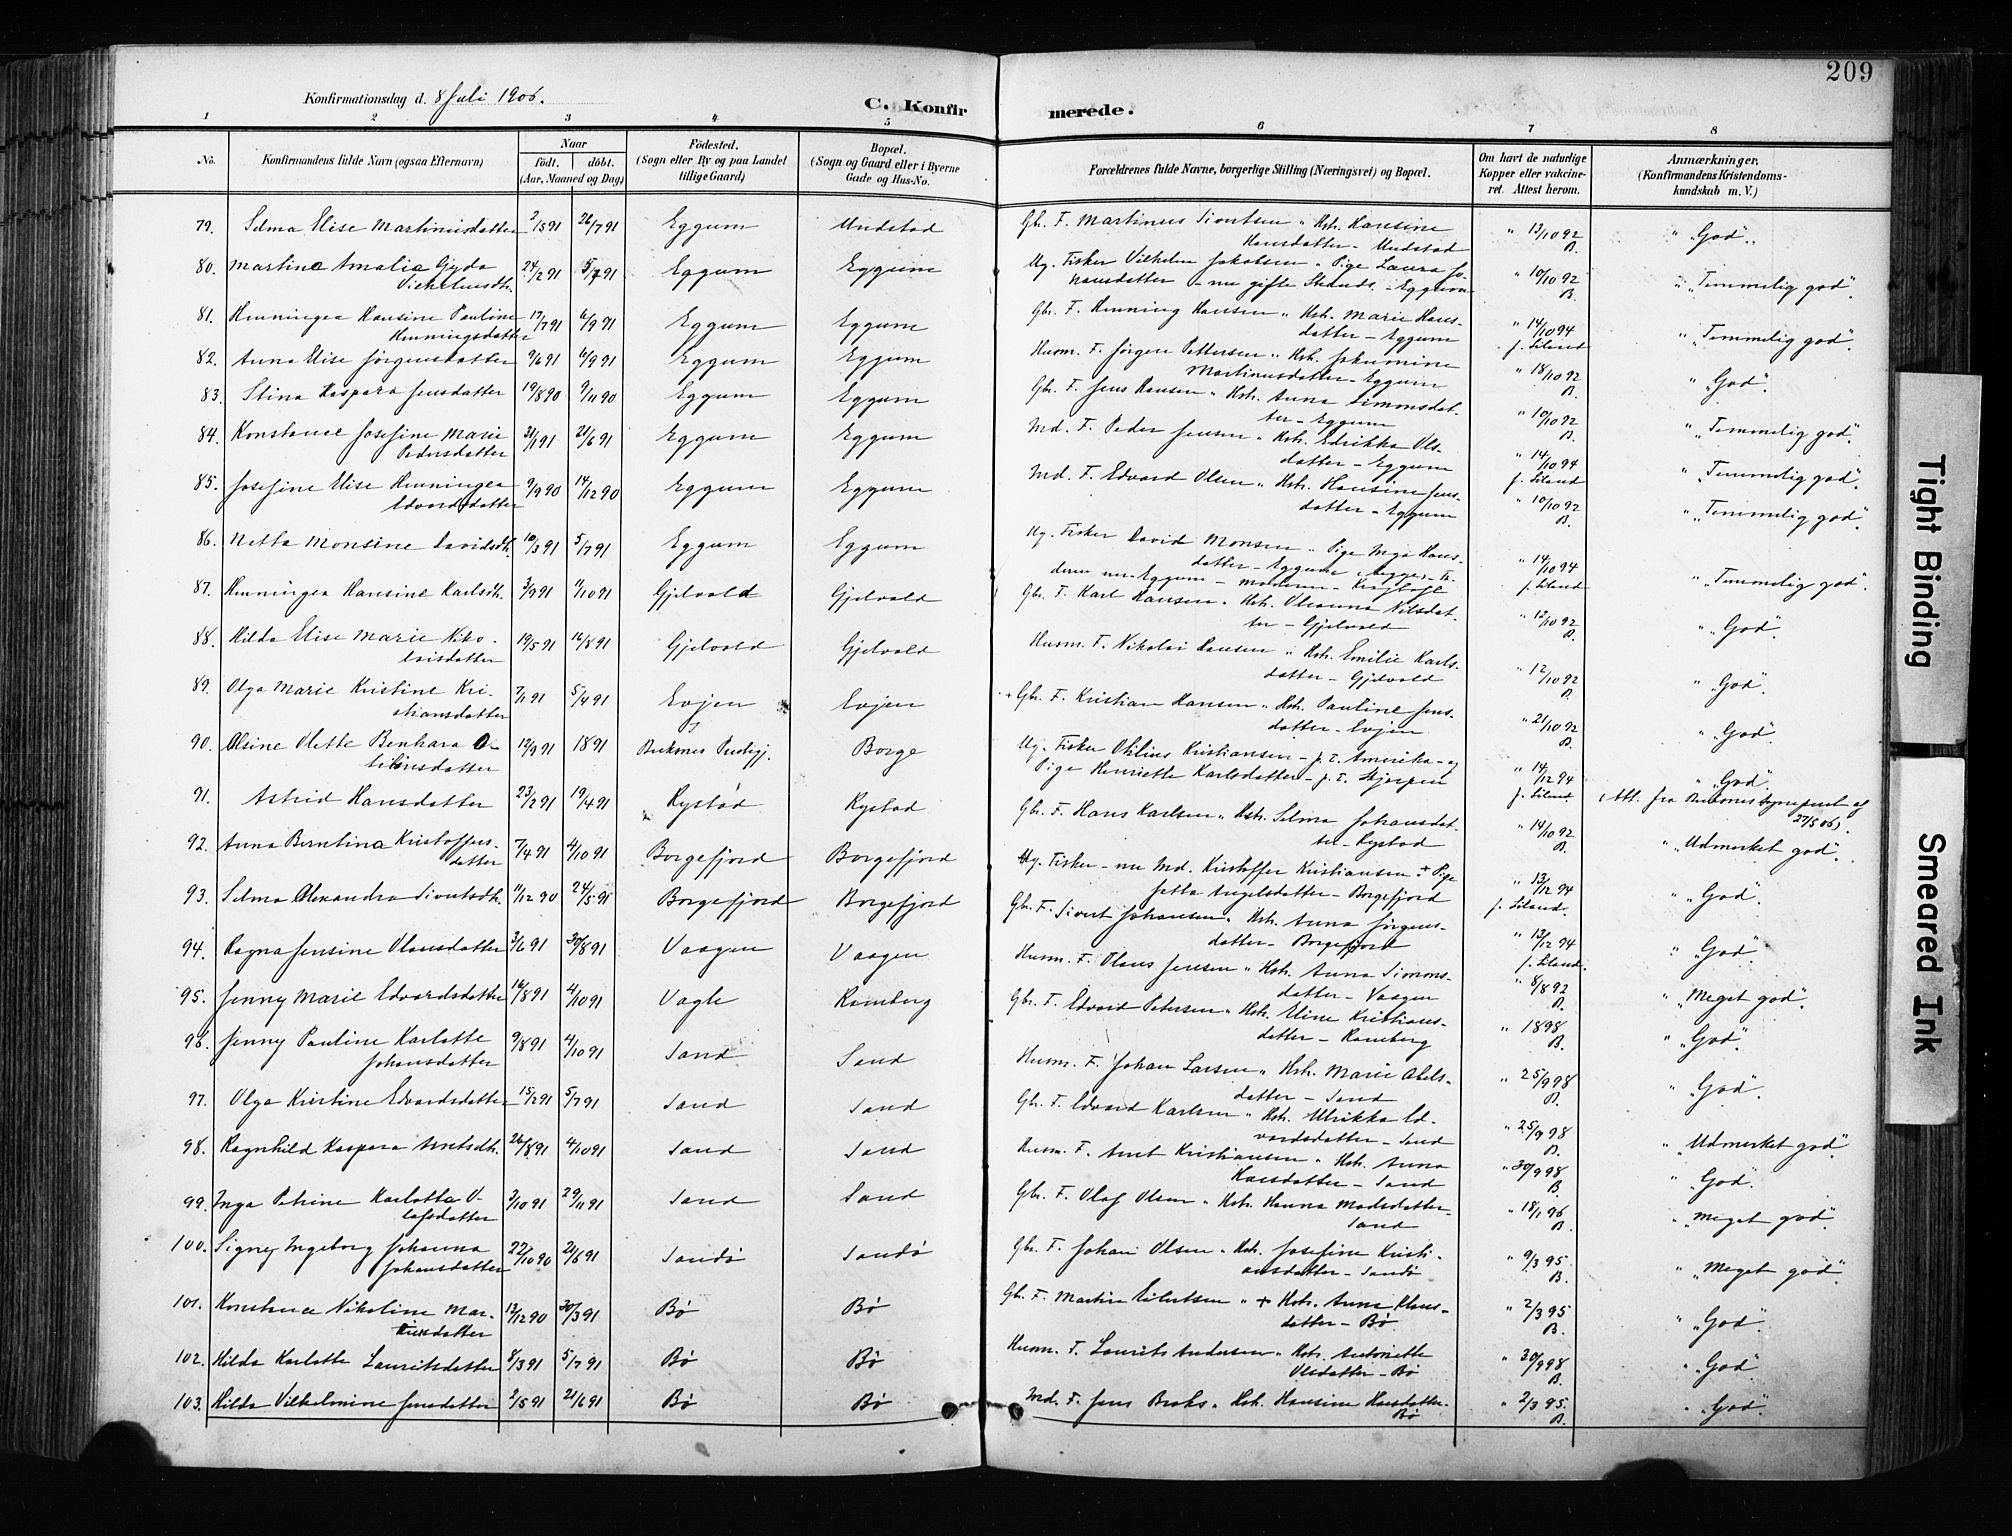 209
Konfirmationsdag d. 8 Juli 1906.
C. Konfirmerede.
1 2 3 4 5 6 7 8
No. Konfirmandens fulde Navn (ogsaa Efternavn) Naar født. døbt. (Aar, Maaned og Dag) Fødested. (Sogn eller By og paa Landet tillige Gaard) Bopæl. (Sogn og Gaard eller i Byerne Gade og Hus-No. Forældrenes fulde Navne, borgerlige Stilling (Næringsvei) og Bopæl. Om havt de naturlige Kopper eller vaccineret. Attest herom. Anmærkninger, (Konfirmandens Kristendomskundskab m. V.)
79. Selma Elise Martinusdatter 2/5 91 26/7 91 Eggum Undstad Gbr. F. Martinus Sivertsen " Hst. Hansine Hansdatter - Undstad " 13/10 92 B. " "God".
80. Martine Amalia Gyda Vilhelmsdtr. 24/2 91 5/7 91 Eggum Eggum Ug. Fisker Vilhelm Jakobsen " Pige Laura Johansdatter - nu gifte Strands. - Eggum " 10/10 92 B. " "Temmelig god".
81. Henningea Hansine Pauline Henningsdatter 17/7 91 6/9 91 Eggum Eggum Gbr. F. Henning Hansen " Hst. Marie Hansdatter - Eggum " 14/10 94 f. Siland " "Temmelig god".
82. Anna Elise Jørgensdatter 9/6 91 6/9 91 Eggum Eggum Husm. F. Jørgen Pettersen " Hst. Jakumine Martinusdatter - Eggum " 18/10 92 B. " "God".
83. Stina Kaspara Jensdatter 19/8 90 9/11 90 Eggum Eggum Gbr. F. Jens Hansen " Hst. Anna Simonsdatter - Eggum " 10/10 92 B. " "Temmelig god".
84. Konstance Josefine Marie Pedersdatter 21/1 91 21/6 91 Eggum Eggum Md. F. Peder Jensen " Hst. Edrikka Olsdatter - Eggum " 14/10 94 f. Siland " "Temmelig god".
85. Josefine Elise Henningea Edvardsdatter 9/9 90 14/12 90 Eggum Eggum Md. F. Edvard Olsen " Hst. Hansine Jensdatter - Eggum " 10/10 92 B. " "Temmelig god".
86. Netta Monsine Davidsdtr. 10/3 91 5/7 91 Eggum Eggum Ug. Fisker David Monsen " Pige Inga Hansdatter - Eggum, begge, - Faderen nu - Eggum - moderen - " 14/10 94 f. Siland " "Temmelig god".
87. Henningea Hansine Karlsdtr. 3/9 91 11/10 91 Gjelvold Gjelvold Gbr. F. Karl Hansen " Hst. Oleanna Nilsdatter - Gjelvold " 12/10 92 B. " "God".
88. Hilda Elise Marie Nikolaisdatter 19/5 91 16/8 91 Gjelvold Gjelvold Husm. F. Nikolai Hansen " Hst. Emilie Karlsdatter - Gjelvold " 12/10 92 B. " "God".
89. Olga Marie Kristine Kristiansdatter 7/1 91 5/4 91 Evjen Evjen + Gbr. F. Kristian Hansen " Hst. Pauline Jensdatter - Evjen " 21/10 92 B. " "God".
90. Alsine Olette Benhara Otiliusdatter 12/9 91 18 91 Buksnes Prestegj. Borge Ug. Fisker Otilius Kristiansen - p. t. Amerika - og Pige Henriette Karlsdatter - p. t. Skjerpen " 14/12 94 f. Siland " "God" (Att. fra Buksnes Sogneprest af 27/5 06).
91. Astrid Hansdatter 23/2 91 19/4 91 Rystad Rystad Gbr. F. Hans Karlsen " Hst. Selma Johansdatter - Rystad " 14/10 92 B. " "Udmerket god".
92. Anna Berntina Kristoffersdatter 7/4 91 4/10 91 Borgefjord Borgefjord Ug. Fisker - nu Md. Kristoffer Kristiansen + Pige Jetta Angelsdatter - Borgefjord " 13/12 94 f. Siland. " "God".
93. Selma Alexandra Sivertsdtr. 11/12 90 24/5 91 Borgefjord Borgefjord Gbr. F. Sivert Johansen " Hst. Anna Jørgensdatter - Borgefjord " 13/12 94 f. Siland. " "God".
94. Ragna Jensine Olausdatter 3/6 91 30/8 91 Vaagen Vaagen Husm. F. Olaus Jensen " Hst. Anna Simonsdatter - Vaagen " 8/8 92 B. " "Meget god".
95. Jenny Marie Edvardsdatter 16/8 91 4/10 91 Vagle Ramberg Gbr. F. Edvard Petersen " Hst. Eline Kristiansdatter - Ramberg " 1898 B. " "God".
96. Jenny Pauline Karlotte Johansdatter 9/8 91 4/10 91 Sand Sand Husm. F. Johan Larsen " Hst. Marie Abelsdatter - Sand " 25/9 98 B. " "God".
97. Olga Kristine Edvardsdatter 15/2 91 5/7 91 Sand Sand Gbr. F. Edvard Karlsen " Hst. Ulrikka Edvardsdatter - Sand " 25/9 98 B. " "Udmerket god".
98. Ragnhild Kaspara Arntsdtr. 26/8 91 4/10 91 Sand Sand Husm. F. Arnt Kristiansen " Hst. Anna Hansdatter - Sand " 30/9 98 B. " "God".
99. Inga Petrine Karlotta Olafsdatter 3/10 91 29/11 91 Sand Sand Gbr. F. Olaf Olsen " Hst. Hanna Madsdatter - Sand " 18/1 96 B. " "Meget god".
100. Signe Ingeborg Johanna Johansdatter 22/10 90 21/6 91 Sandø Sandø Gbr. F. Johan Olsen " Hst. Josefine Kristiansdatter - Sandø " 9/3 95 B. " "Meget god".
101. Konstance Nikoline Martinsdatter 13/12 90 30/3 91 Bø Bø Gbr. F. Martin Eilertsen " + Hst. Anna Klausdatter - Bø " 2/3 95 B. " "God".
102. Hilda Karlotte Lauritsdatter 8/3 91 5/7 91 Bø Bø Husm. F. Laurits Andersen " Hst. Antonette Olsdatter - Bø " 30/9 98 B. " "God".
103. Hilda Vilhelmine Jensdatter 2/5 91 21/6 91 Bø Bø Md. F. Jens Broks " Hst. Hansine Hansdatter - Bø " 2/3 95 B. " "God".
Tight Binding
Smeared Ink